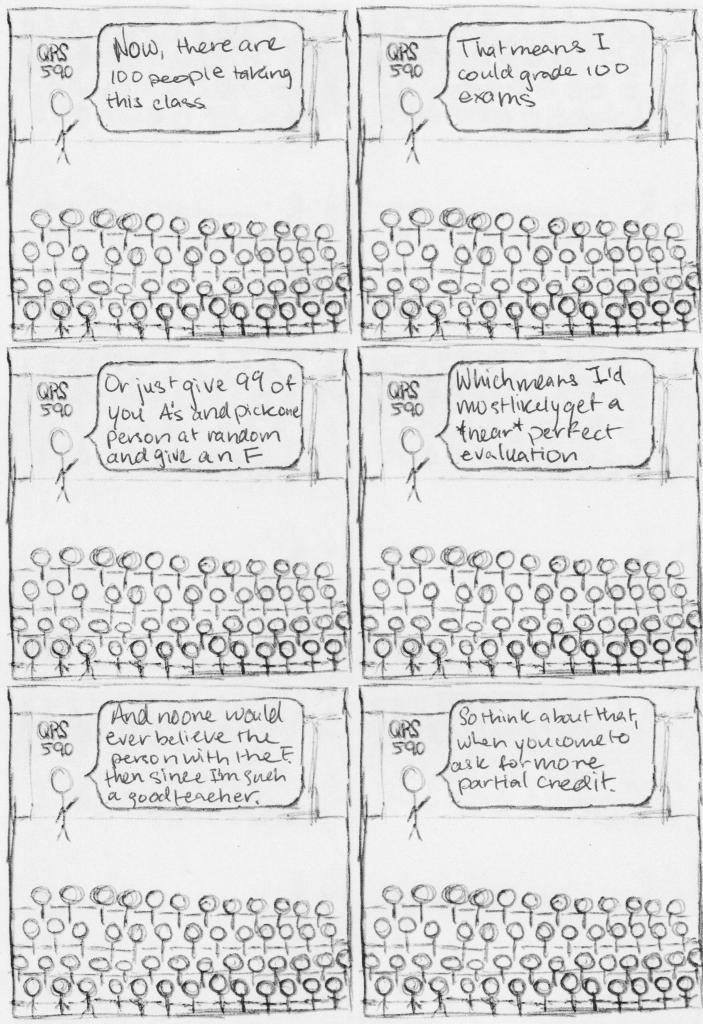 QRS
590
Now, there are
100 people taking
this class
QRS
590
That means I
could grade 100
exams
QRS
590
Or just give 99 of
you A's and pick one
person at random
and give an F
QRS
590
Which means I'd
most likely get a
*near* perfect
evaluation
QRS
590
And no one would
ever believe the
person with the F.
then since I'm such
a good teacher.
QRS
590
So think about that,
when you come to
ask for more
partial credit.